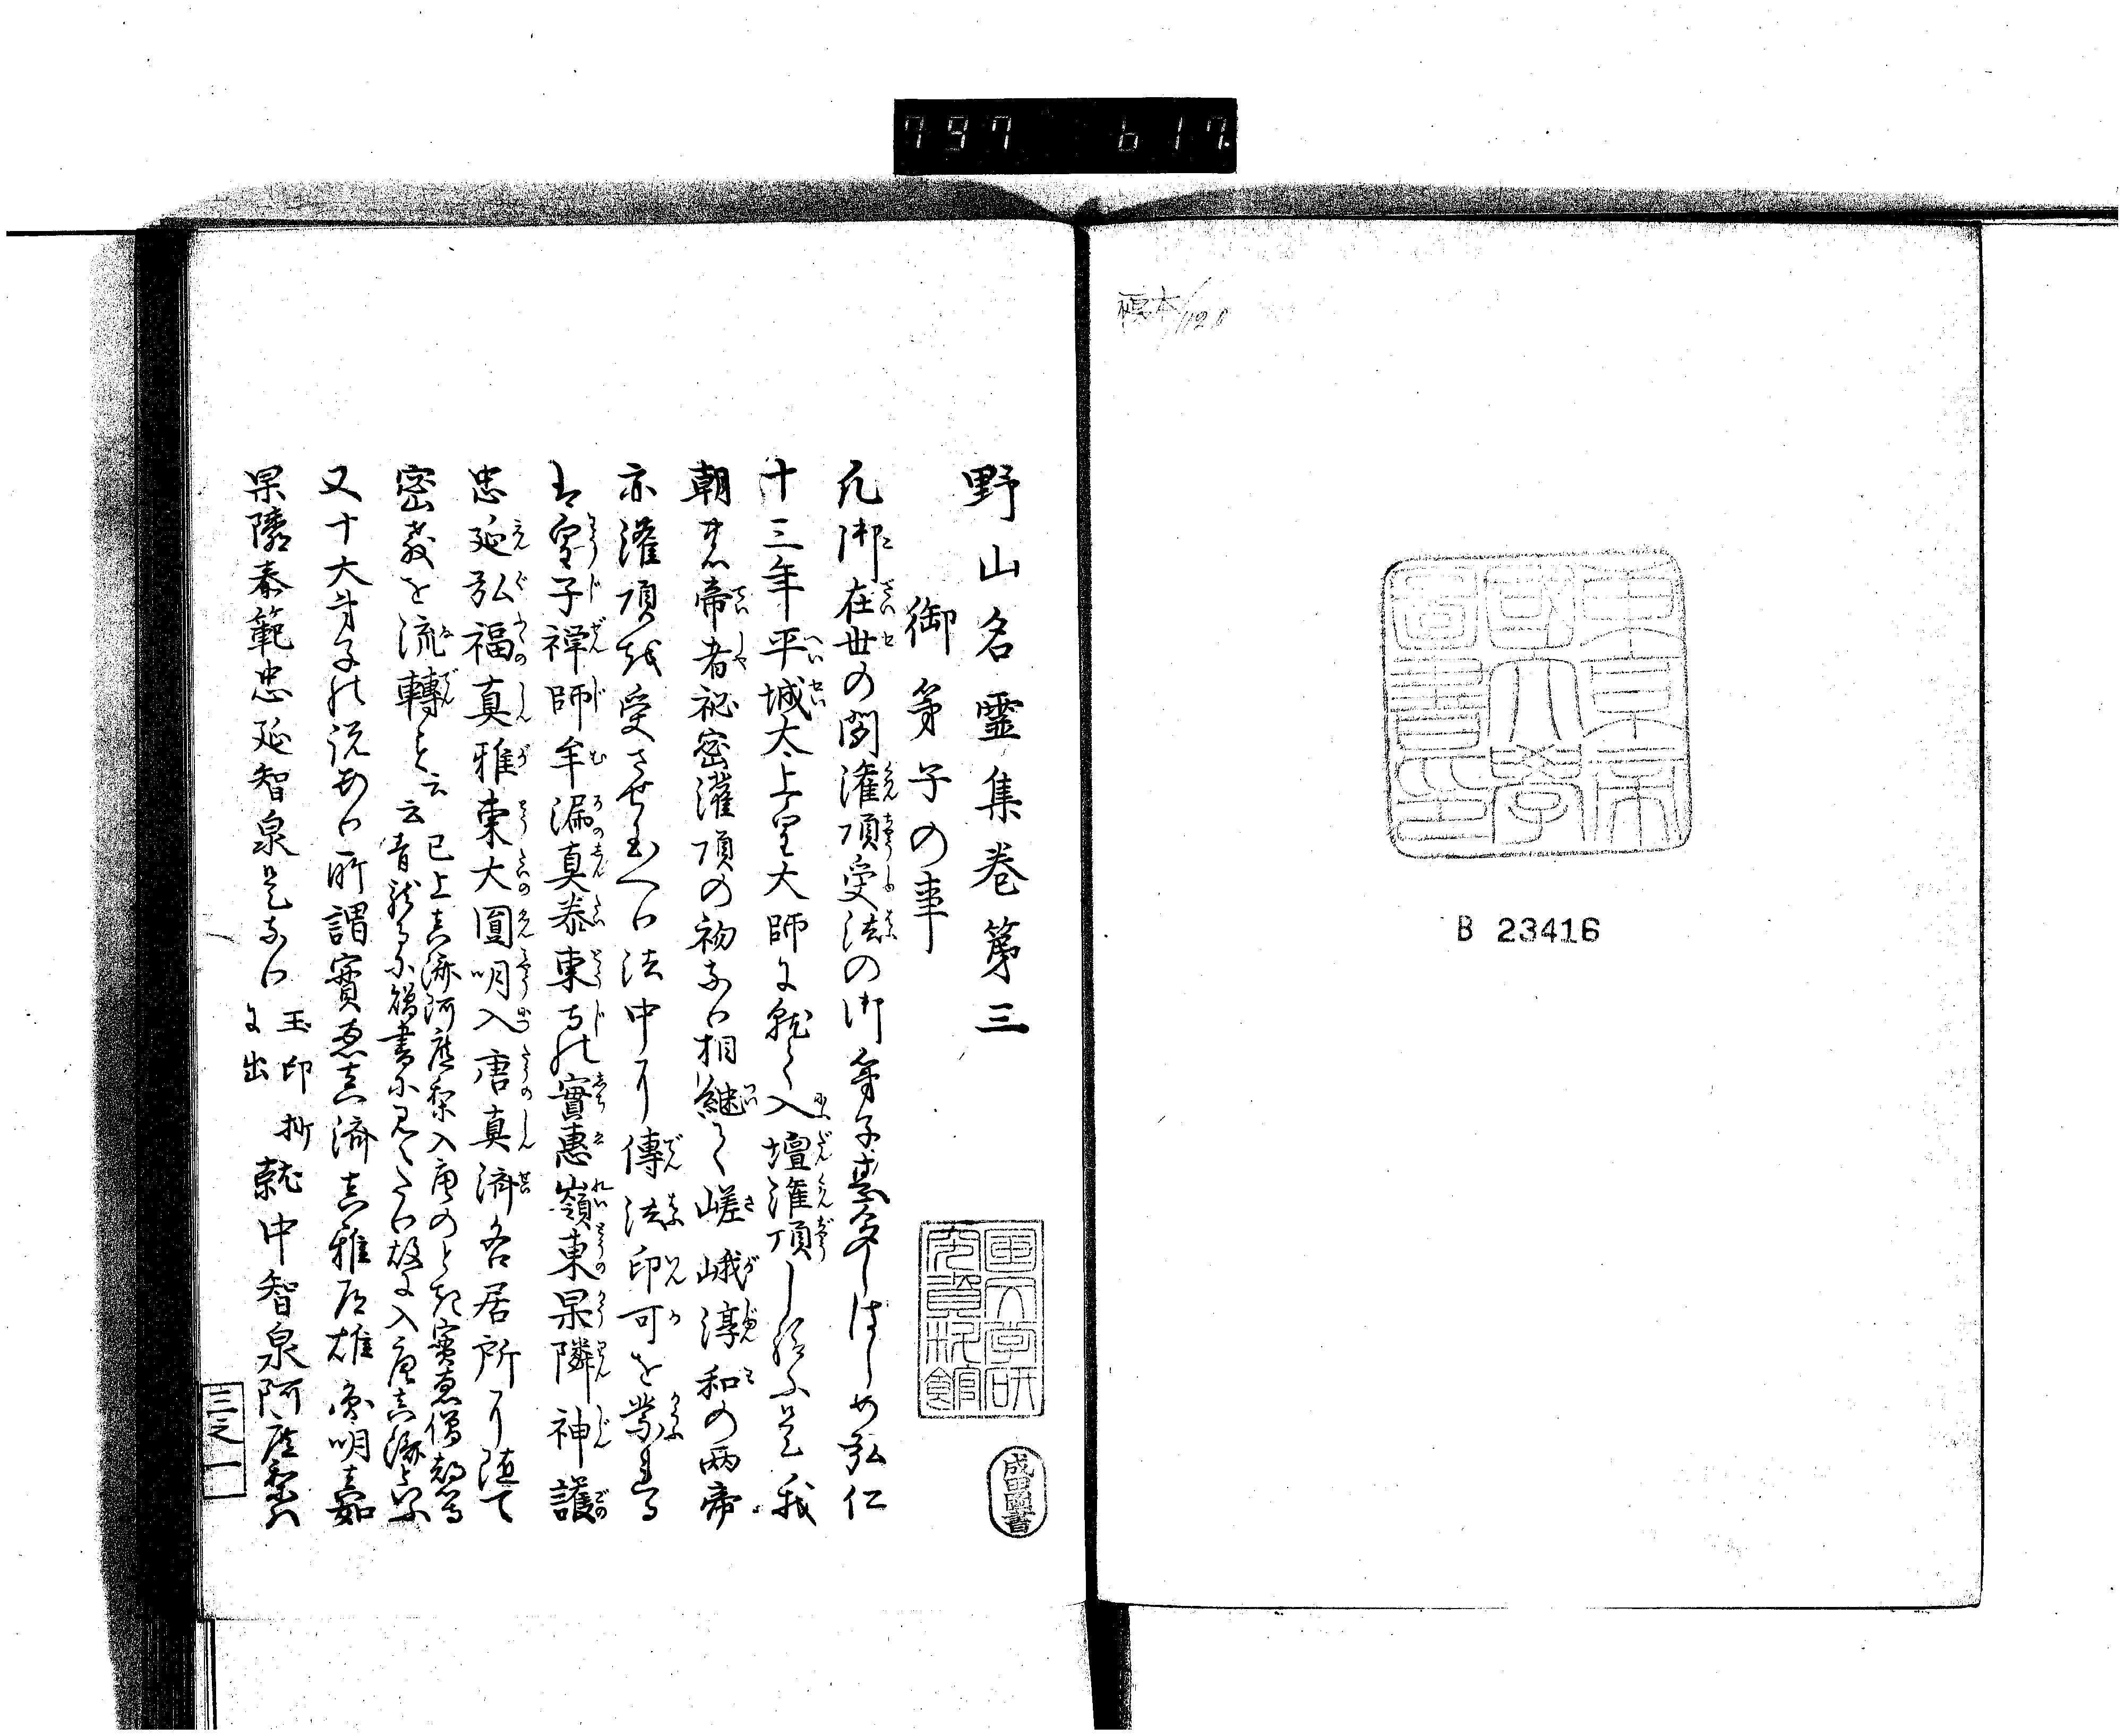 797 617.
標本/1120
東京帝
國大學
圖書印
B 23416
野山名霊集巻第三
御弟子の事
凡御在世の間灌頂受法の御弟子甚多しはしめ弘仁
十三年平城太上皇大師に就て入壇灌頂し給ふ是我
朝の帝者秘密灌頂の初なり相継て嵯峨淳和の両帝
亦灌頂を受させ玉へり法中に傳法印可を蒙る
皇子禅師牟漏真泰東寺の實惠嶺東杲隣神護
忠延弘福真雅東大圓明入唐真済各居所に随て
密教を流轉と云云
已上真済阿闍梨入唐のとき實惠僧都等
青龍寺に贈書に見へたり故に入唐真済と云
又十大弟子の説あり所謂實恵真済真雅道雄圓明真如
杲隣泰範忠延智泉是なり
玉印抄
に出
就中智泉阿闍梨は
三之一
國文学研
究資料館
成田圖書